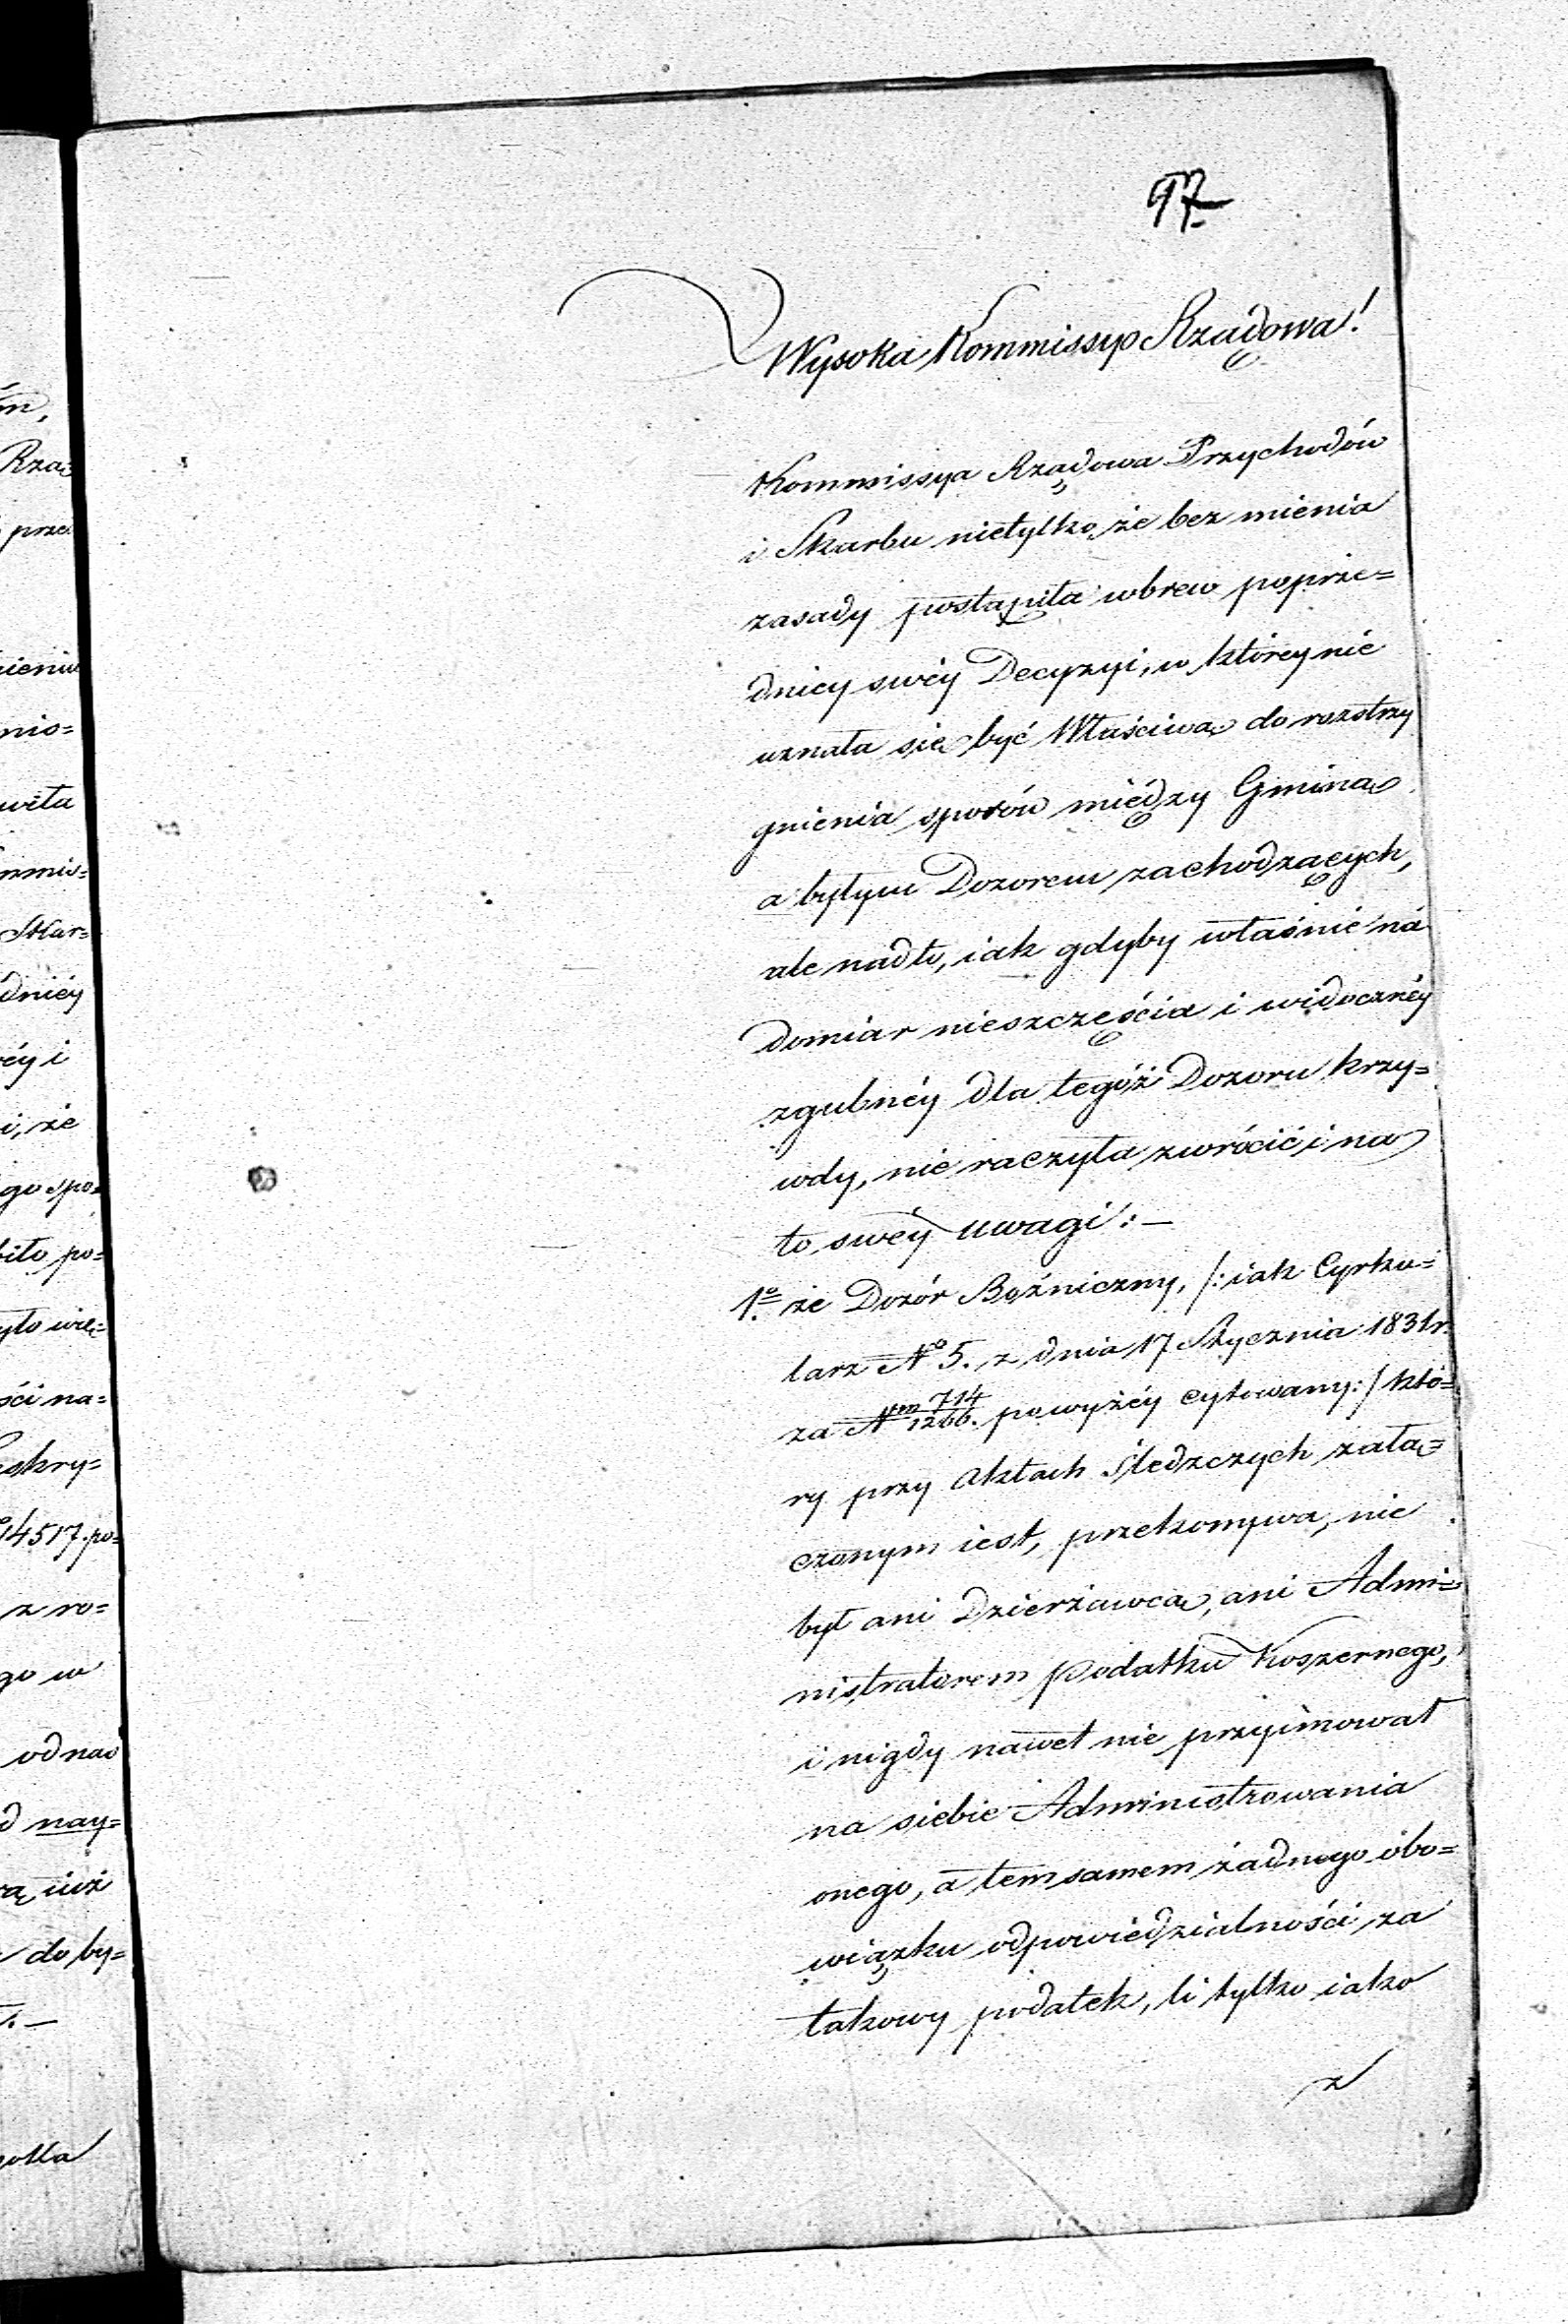 97
Wysoka Kommissyo Rządowa!
Kommissya Rządowa Przychodów
i Skarbu nietylko, że bez mienia
zasady postąpiła wbrew poprze=
dniey swéy Decyzyi, w któréy nie
uznała się być Właściwą do rozstrzy
gnienia sporów między Gminą
a byłym Dozorem zachodzących,
ale nadto, iak gdyby właśnie na
domiar nieszczęścia i widocznéy
zgubnéy dla tegóż Dozoru krzy=
wdy, nie raczyła zwrócić i na
to swéy uwagi:—
1o że Dozór Bożniczny, /: iak Cyrku=
larz No 5. z dnia 17 Stycznia 1831 r.
za Nrm 714/1266. powyżéy cytowany :/ któ=
ry przy Aktach Śledczych załą=
czonym iest, przekonywa, nie
był ani Dzierżawcą, ani Admi=
nistratorem Podatku Koszernego,
i nigdy nawet nie przyimował
na siebie Administrowania
onego, a tem samem żadnego obo=
wiązku odpowiedzialności za
takowy podatek, li tylko iako
z
Rzą=
prze
ieniu
nio=
wiła
mmis=
Skar=
dniéy
éy i
i, że
go spo=
biło po=
yło wię=
ści na=
eskry=
14517. po=
z ro=
go w
od nad
d nay=
rą iuż
do by=